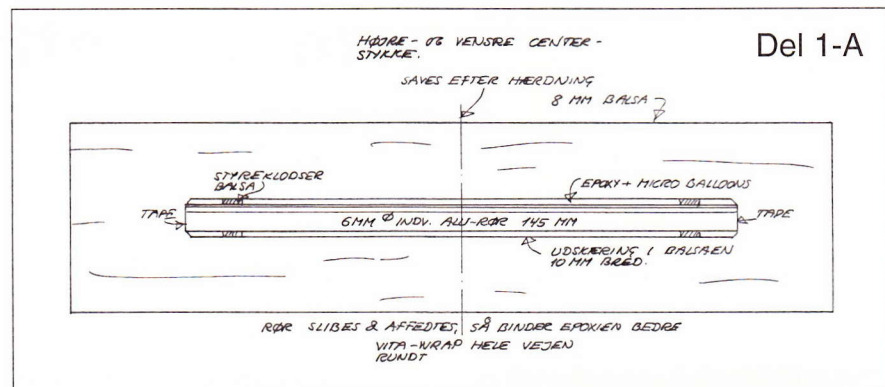 Del 1-A
HØJRE- OG VENSTRE CENTER-
STYKKE.
SAVES EFTER HÆRDNING
8 MM BALSA
STYREKLODSER
BALSA
EPOXY + MICRO BALLOONS
TAPE
6MM Ø INDV. ALU-RØR 145 MM
TAPE
UDSKÆRING I BALSAEN
10 MM BRED.
RØR SLIBES & AFFEDTES, SÅ BINDER EPOXIEN BEDRE
VITA-WRAP HELE VEJEN
RUNDT